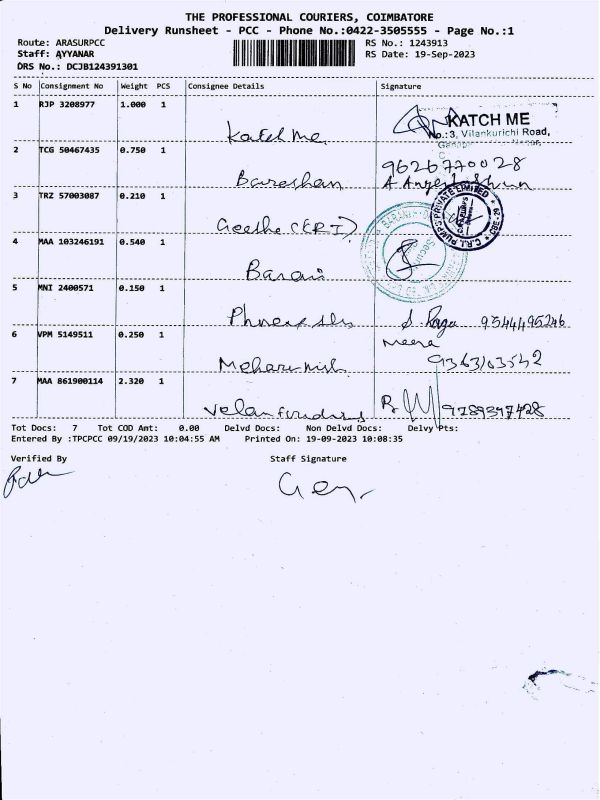 THE PROFESSIONAL COURIERS, COIMBATORE
Delivery Runsheet - PCC - Phone No.:0422-3505555 - Page No.:1
Route: ARASURPCC RS No.: 1243913
Staff: AYYANAR RS Date: 19-Sep-2023
DRS No.: DCJB124391301
S No Consignment No Weight PCS Consignee Details Signature
1 RJP 3208977 1.000 1 Katch me
KATCH ME
No.:3, Vilankurichi Road,
2 TCG 50467435 0.750 1
9626770028
3 TRZ 57003087 0.210 1 Geetha (CRI)
C.R.I. PUMPS PRIVATE LIMITED
4 MAA 103246191 0.540 1
5 MNI 2400571 0.150 1
S. Raga 9544495246
6 VPM 5149511 0.250 1
meera
9363103542
7 MAA 861900114 2.320 1
9789397428
Tot Docs: 7 Tot COD Amt: 0.00 Delvd Docs: Non Delvd Docs: Delvy Pts:
Entered By :TPCPCC 09/19/2023 10:04:55 AM Printed On: 19-09-2023 10:08:35
Verified By Staff Signature